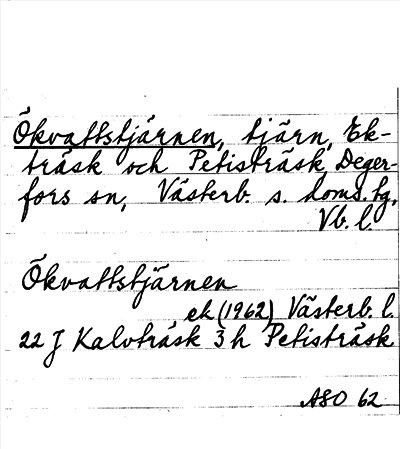 Ökvattstjärnen, tjärn, Ek-
träsk och Petisträsk, Deger-
fors sn, Västerb. s. doms. tg,
Vb. l.
Ökvattstjärnen
ek (1962) Västerb. l.
22 J Kalvträsk 3 h Petisträsk
ASO 62